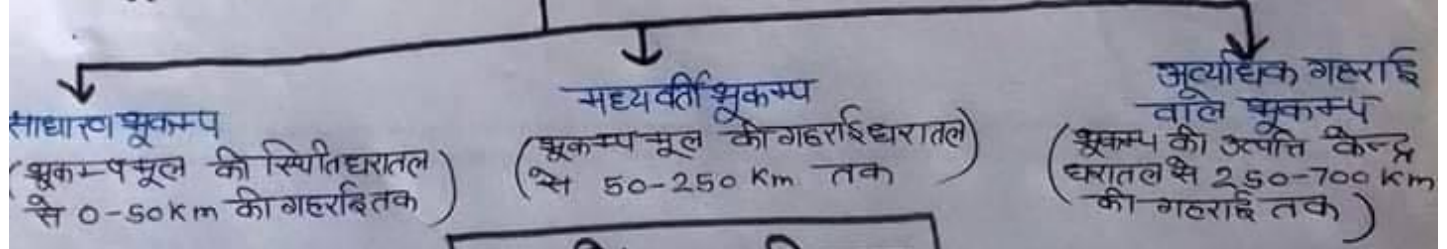 साधारण भूकम्प
(भूकम्प मूल की स्थिति धरातल
से 0-50Km की गहराई तक)
मध्यवर्ती भूकम्प
(भूकम्प मूल की गहराई धरातल
से 50-250 Km तक)
अत्याधिक गहराई
वाले भूकम्प
(भूकम्प की उत्पत्ति केन्द्र
धरातल से 250-700 Km
की गहराई तक)